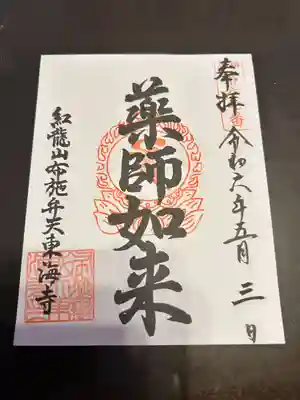 奉拝
令和六年五月三日
薬師如来
紅龍山布施弁天東海寺